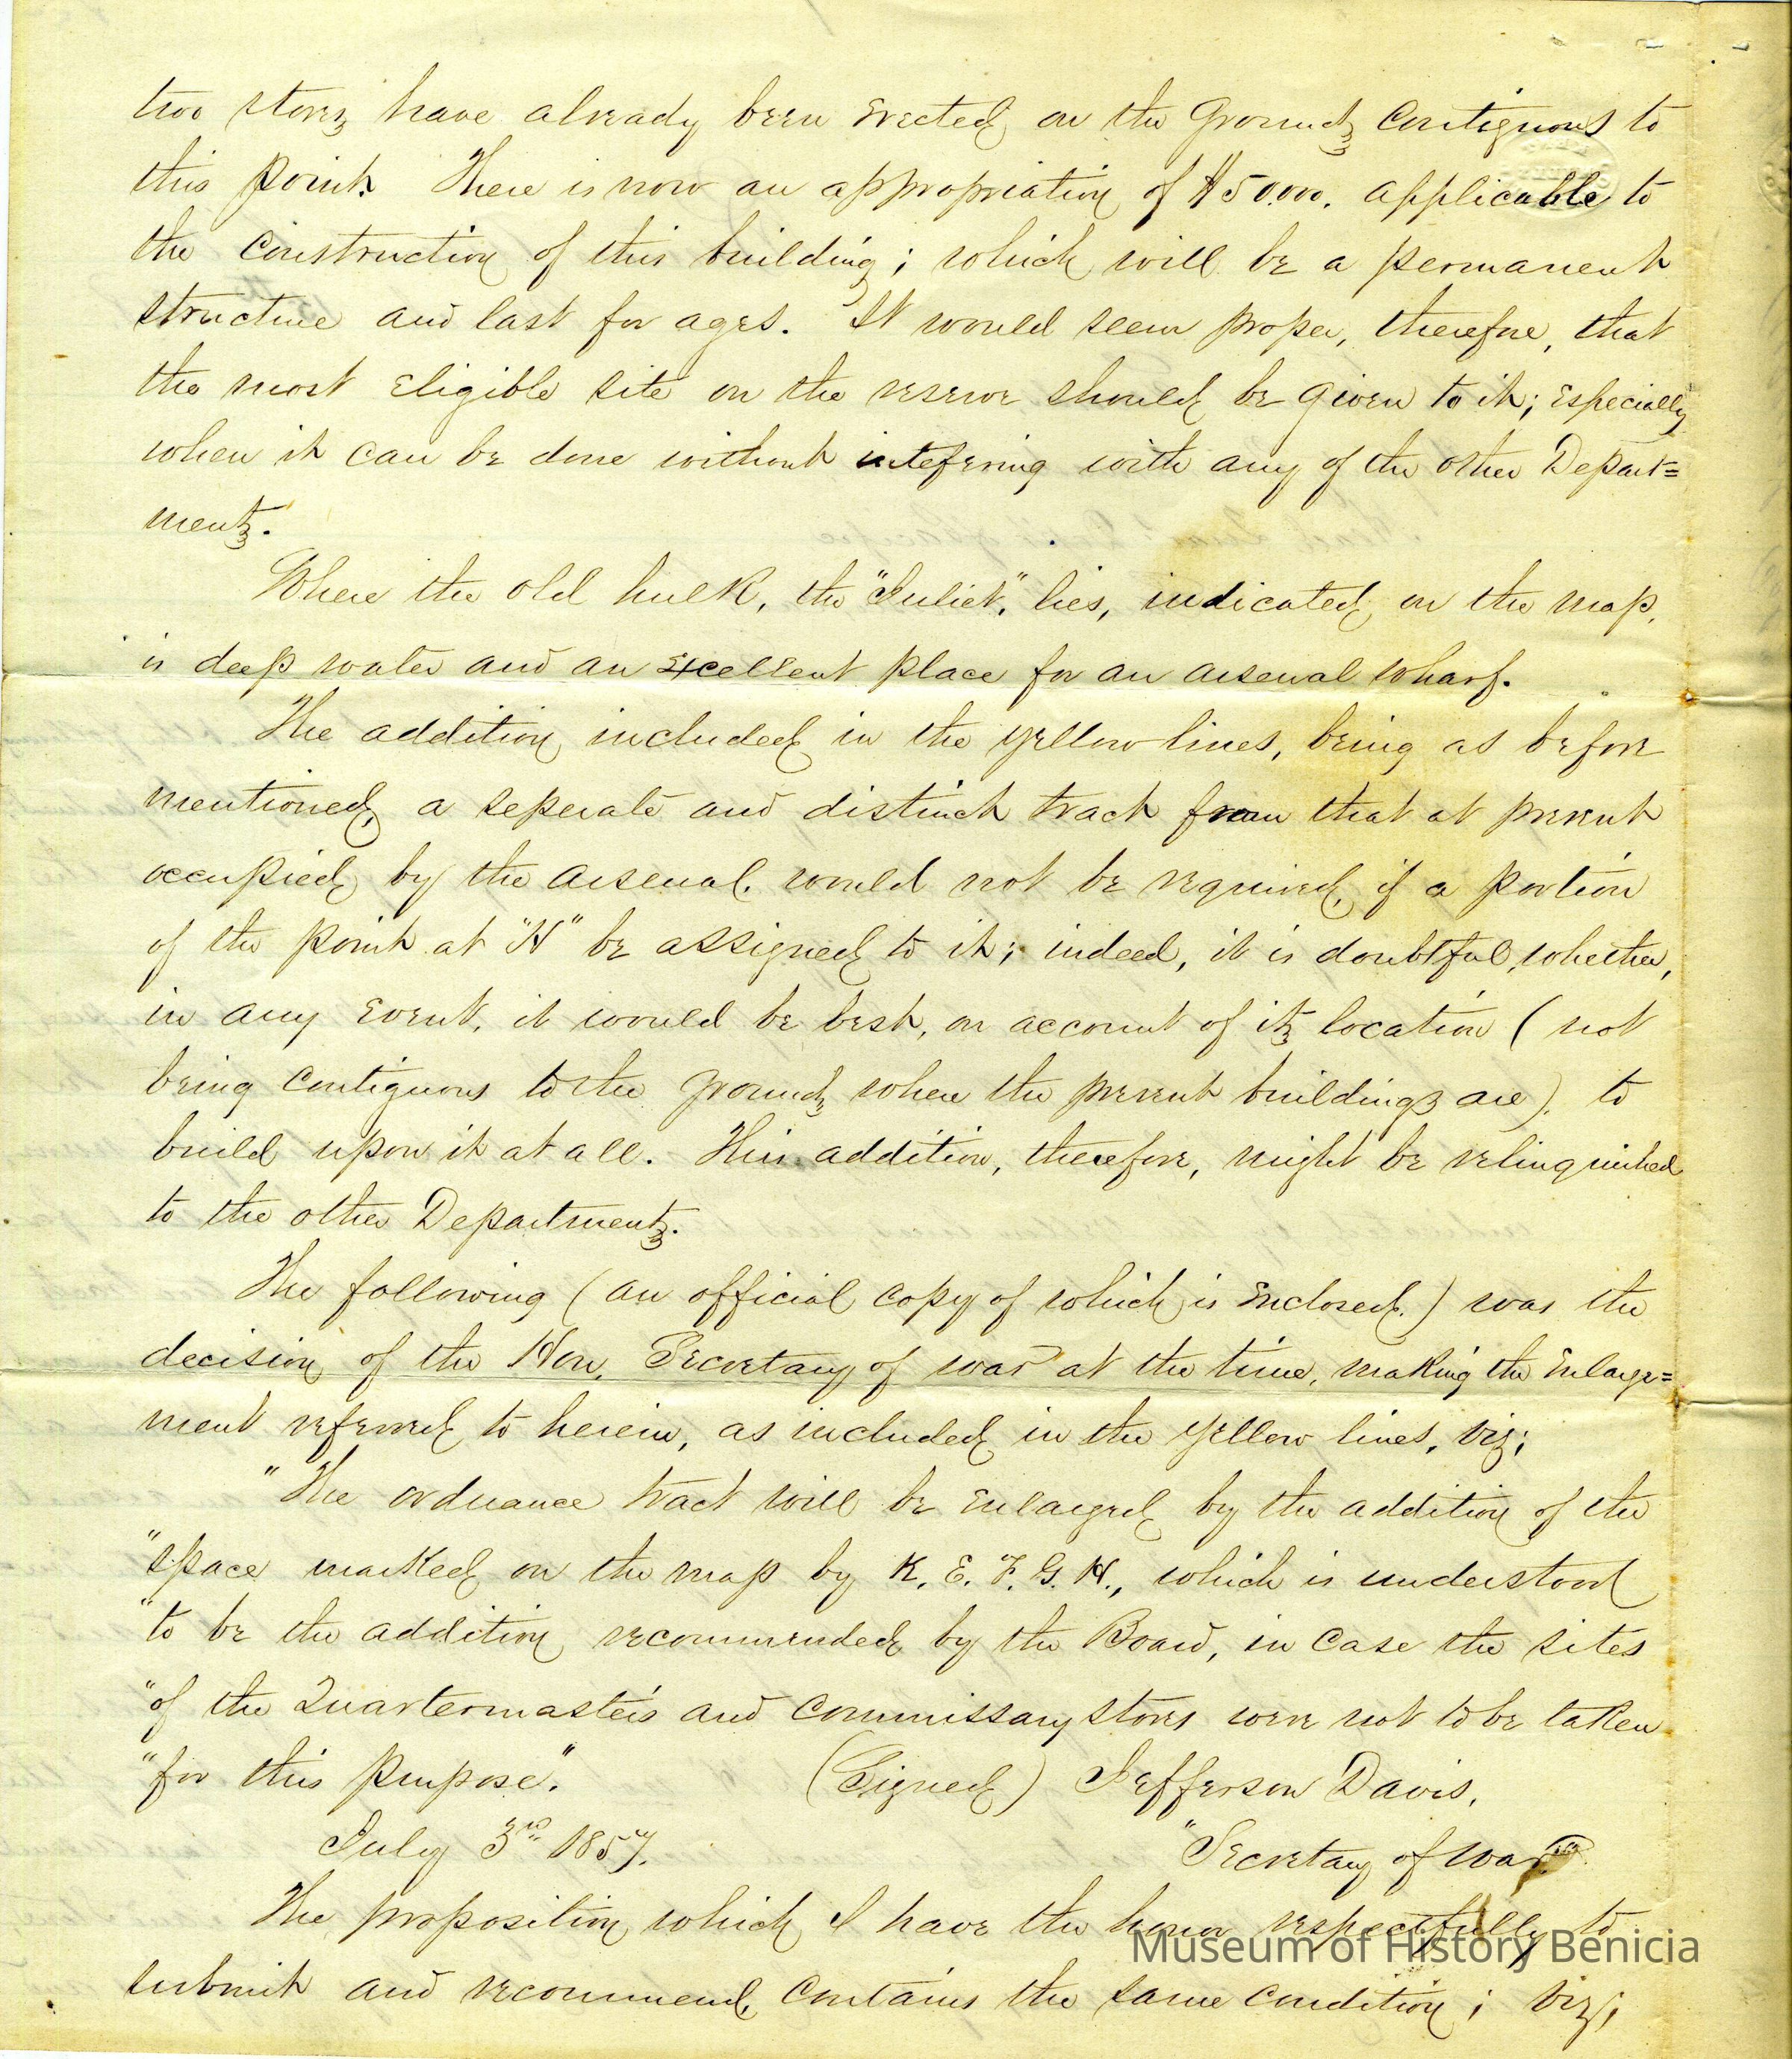 two storez have already been erected on the Groundz contiguous to
this point. There is now an appropriation of $50.000. applicable to
the construction of this building; which will be a permanent
structure and last for ages. It would seem proper, therefore, that
the most eligible site on the reserve should be given to it; especially
when it can be done without intefering with any of the other Depart=
mentz.
Where the old hulk, the "Juliet", lies, indicated on the map,
is deep water and an excellent place for an arsenal wharf.
The addition included in the yellow lines, being as before
mentioned, a seperate and distinct track from that at present
occupied by the arsenal. would not be required, if a portion
of the point at "H" be assigned to it; indeed, it is doubtful, whether,
in any event, it would be best, on account of itz location ( not
being contiguous to the groundz where the present buildingz are ), to
build upon it at all. This addition, therefore, might be relinquished
to the other Departmentz.
The following ( an official copy of which is enclosed. ) was the
decision of the Hon. Secretary of war at the time, making the enlarge=
ment referred to herein, as included in the yellow lines, viz;
"The ordnance tract will be enlarged by the addition of the
"space marked on the map by K. E. F. G. H., which is understood
"to be the addition recommended by the Board, in case the sites
"of the Quartermaster's and commissary stores were not to be taken
"for this purpose." (Signed) Jefferson Davis,
July 3rd 1857. "Secretary of war."
The proposition which I have the honor respectfully to
submit and recommend contains the same condition; viz;
Museum of History Benicia